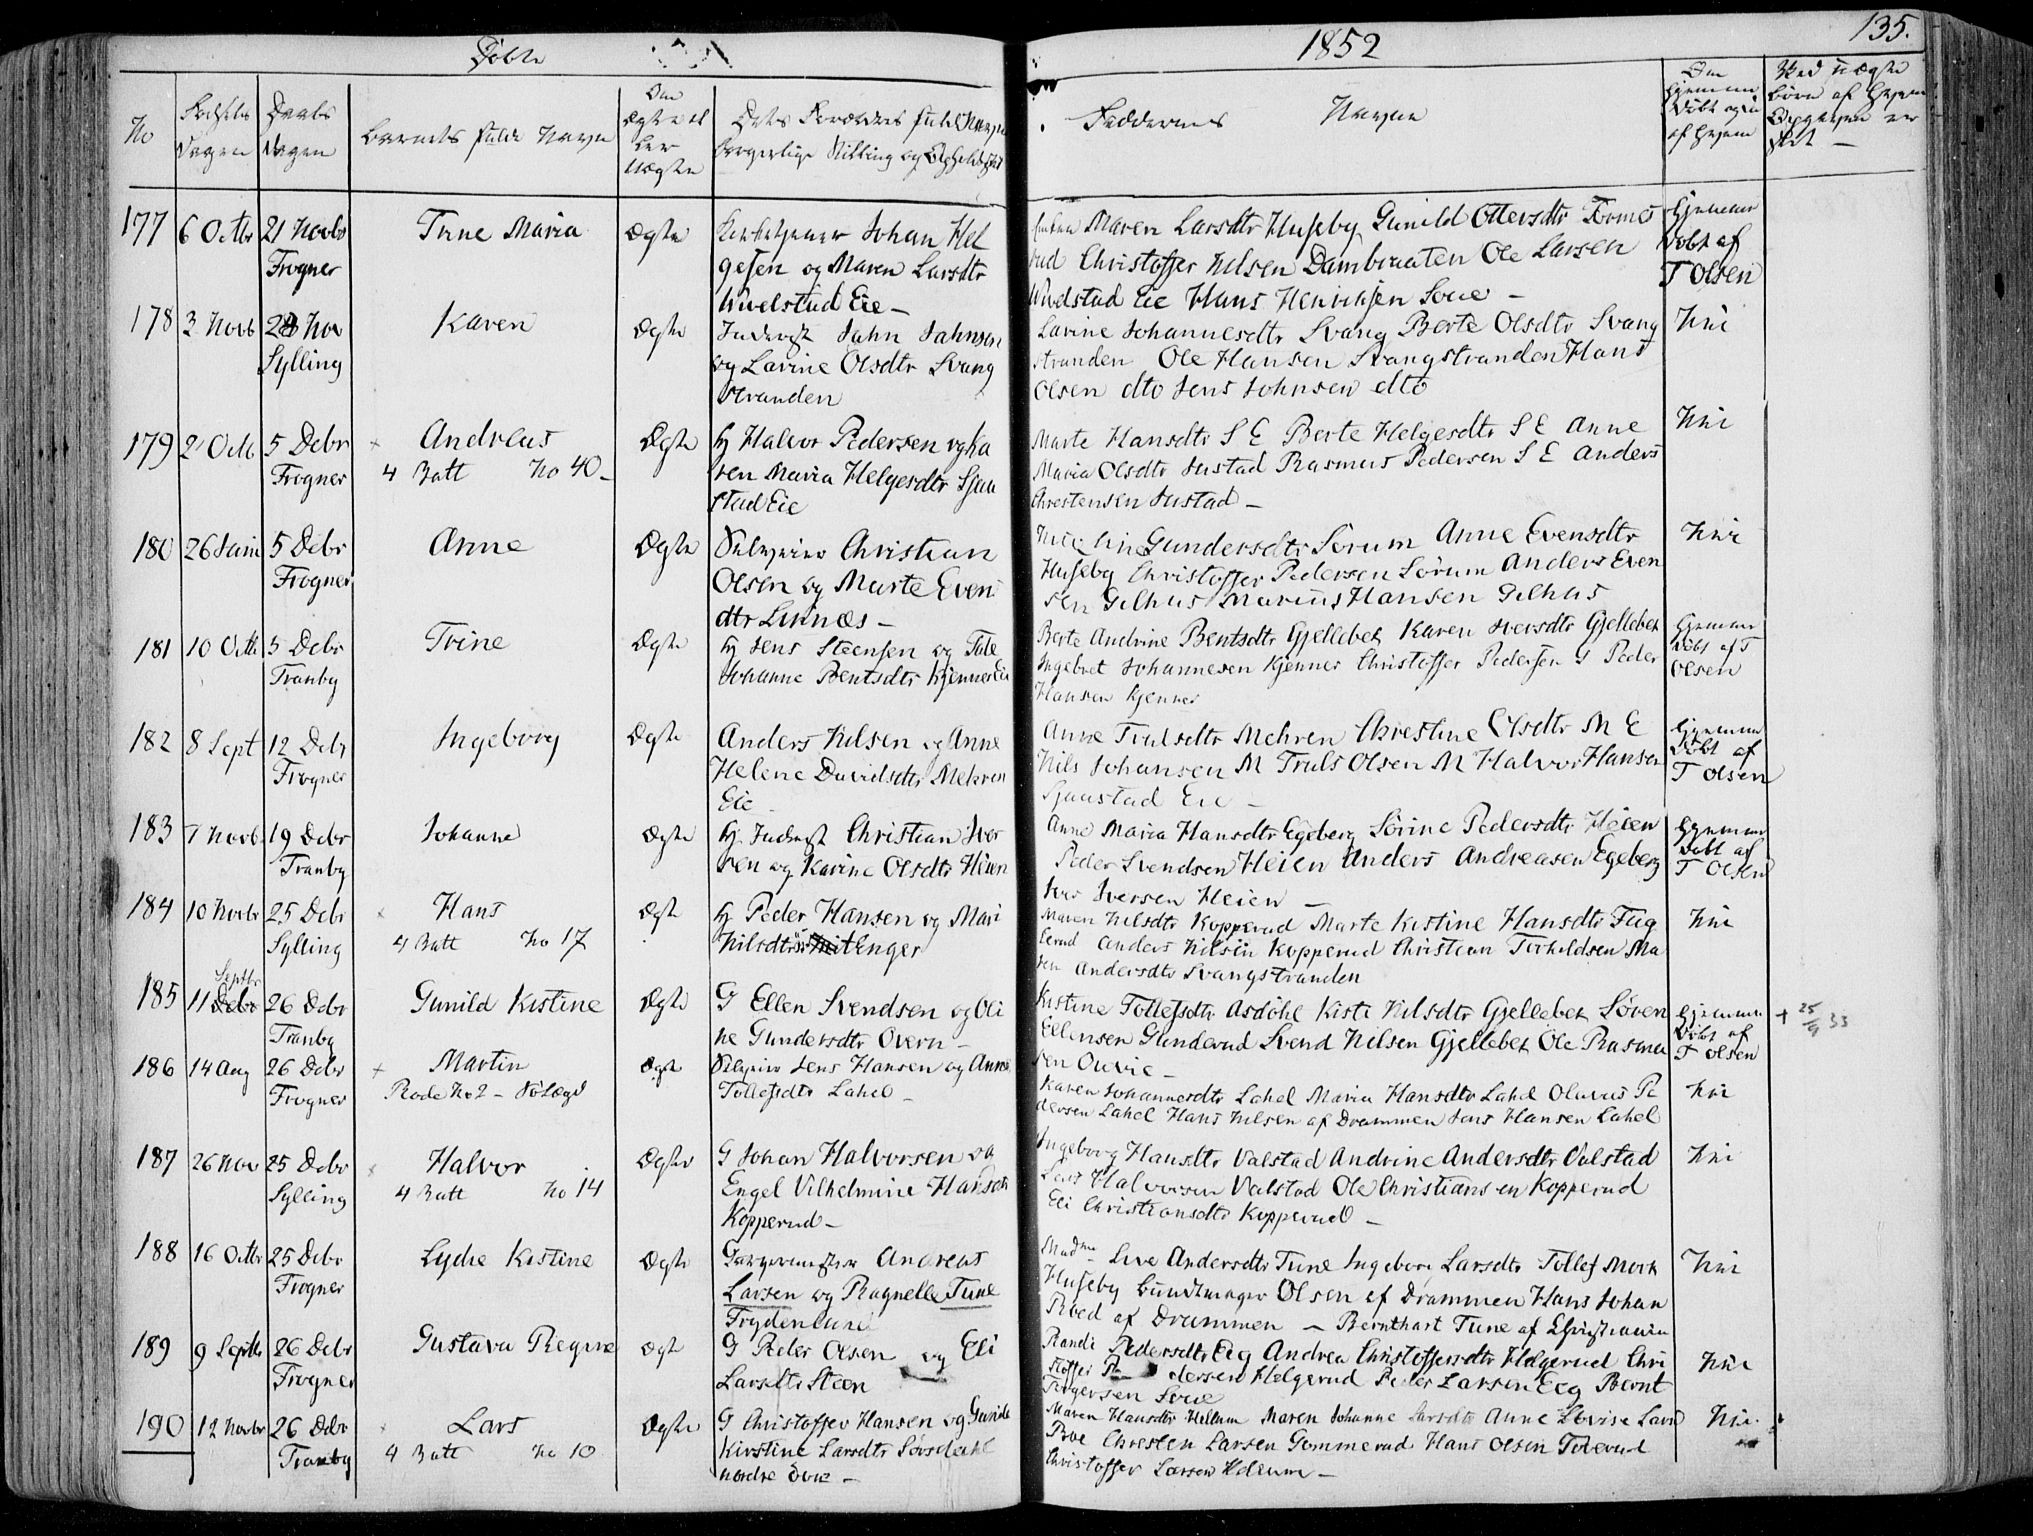 Døbte
1852
135.
No
Fødsels
Dagen
Daabs
Dagen
Barnets fulde Navn
Om
Ægte el
ler
Uægte
Dets Forældres fulde Navn
borgerlige Stilling og Opholdsted
Faddernes Navne
Om
hjemme
Døbt og
af hvem
Ved uægte
Børn af hvem
Opgaven er
skeet
177 6 Octbr 21 Novbr
Frogner
Trine Maria
Ægte
Johan Hel
gesen og Maren Larsdtr
Eie
Maren Larsdtr Huseby Gunild Ottersdtr
rud Christoffer Nilsen Dambraaten Ole Larsen
Eie Hans Henriksen Soue
Hjemme
Døbt af
T Olsen
178 3 Novb 28 Nov
Sylling
Karen
Ægte
Inderst John Johnsen
og Lavine Olsdtr Svang
stranden
Lavine Johannesdtr Svang Berte Olsdtr Svang
stranden Ole Hansen Svangstranden Hans
Olsen dto Jens Johnsen dto
Nei
179 2 Octb 5 Debr
Frogner
Andreas
4 Batt No 40
Ægte
Hj Halvor Pedersen og Ka
ren Maria Helgesdtr Sjaa
stad Eie
Marte Hansdtr S E Berte Helgesdtr S E Anne
Maria Olsdtr Justad Rasmus Pedersen S E Anders
Christensen Justad
Nei
180 26 Juni 5 Debr
Frogner
Anne
Ægte
Selveier Christian
Olsen og Marte Evens
dtr Linnes
Gundersdtr Sørum Anne Evensdtr
Huseby Christoffer Pedersen Sørum Anders Even
sen Gilhus Marius Hansen Gilhus
Nei
181 10 Octb 5 Debr
Tranby
Trine
Ægte
Hj Jens Steensen og
Johanne Bentsdtr Kjenner Eie
Berte Andrine Bentsdtr Gjellebek Karen Iversdtr Gjellebek
Ingebret Johannesen Kjenner Christoffer Pedersen G Peder
Hansen Kjenner
Hjemme
Døbt af T
Olsen
182 8 Sept 12 Debr
Frogner
Ingeborg
Ægte
Anders Nilsen og Anne
Helene Davidsdtr Mehren
Eie
Anne Trulsdtr Mehren Christine Olsdtr M E
Nils Johansen M Truls Olsen M Halvor Hansen
Sjaastad Eie
Hjemme
Døbt af
T Olsen
183 7 Novb 19 Debr
Tranby
Johanne
Ægte
Hj. Inderst Christian Iver
sen og Karine Olsdtr Heien
Anne Maria Hansdtr Egeberg Sørine Pedersdtr Heien
Peder Svendsen Heien Anders Andreasen Egeberg
Iver Iversen Heien
Hjemme
Døbt af
T Olsen
184 10 Novbr 25 Debr
Sylling
Hans
4 Batt No 17
Ægte
Hj Peder Hansen og Mari
Nilsdtr Enger
Maren Nilsdtr Kopperud Marte Kistine Hansdtr Fag
erud Anders Nilsen Kopperud Christian Torkildsen Ma
ren Andersdtr Svangstranden
Nei
185 11 Septbr 26 Debr
Tranby
Gunild Kistine
Ægte
G Ellen Svendsen og Oli
ne Gundersdtr Overn
Kistine Tollefsdtr Asdøhl Kisti Nilsdtr Gjellebek Søren
Ellensen Gunderud Svend Nilsen Gjellebek Ole Rasmu
sen Ouvie
Hjemme
Døbt af
T Olsen
+ 25/9 33
186 14 Aug 26 Debr
Frogner
Martin
Rode No 2 - Søelægd
Ægte
Selveier Jens Hansen og Anne
Tollefsdtr Lahel
Karen Johannesdtr Lahel Maria Hansdtr Lahel Olavus Pe
dersen Lahel Hans Nilsen af Drammen Jens Hansen Lahel
Nei
187 26 Nov 25 Debr
Sylling
Halvor
4 Batt No 14
Ægte
G Johan Halvorsen og
Engel Vilhelmine Hansdtr
Kopperud
Ingeborg Hansdtr Valstad Andrine Andersdtr Valstad
Lars Halvorsen Valstad Ole Christiansen Kopperud
Eli Christiansdtr Kopperud
Nei
188 16 Octbr 25 Debr
Frogner
Lydie Kistine
Ægte
Garvermester Andreas
Larsen og Ragnelle Tune
Frydenlund
Madme Live Andersdtr Tune Ingeborg Larsdtr Tollef Mork
Huseby Bundtmager Olsen af Drammen Hans Johan
Roed af Drammen - Bernthart Tune af Christiania
Nei
189 9 Septb 26 Debr
Frogner
Gustava Regine
Ægte
G Peder Olsen og Eli
Larsdtr Steen
Randi Pedersdtr Eeg Andrea Christoffersdtr Helgerud Chri
stoffer Pedersen Helgerud Peder Larsen Eeg Bernt
Torgersen Soue
Nei
190 12 Novbr 26 Debr
Tranby
Lars
4 Batt No 10
Ægte
G Christoffer Hansen og Gunild
Kirstine Larsdtr Sørsdahl
nordre Eie
Maren Hansdtr Hellum Maren Johanne Larsdtr Anne Lovise Lars
Roe Christen Larsen Gommerud Hans Olsen Toverud
Christoffer Larsen Hellum
Nei